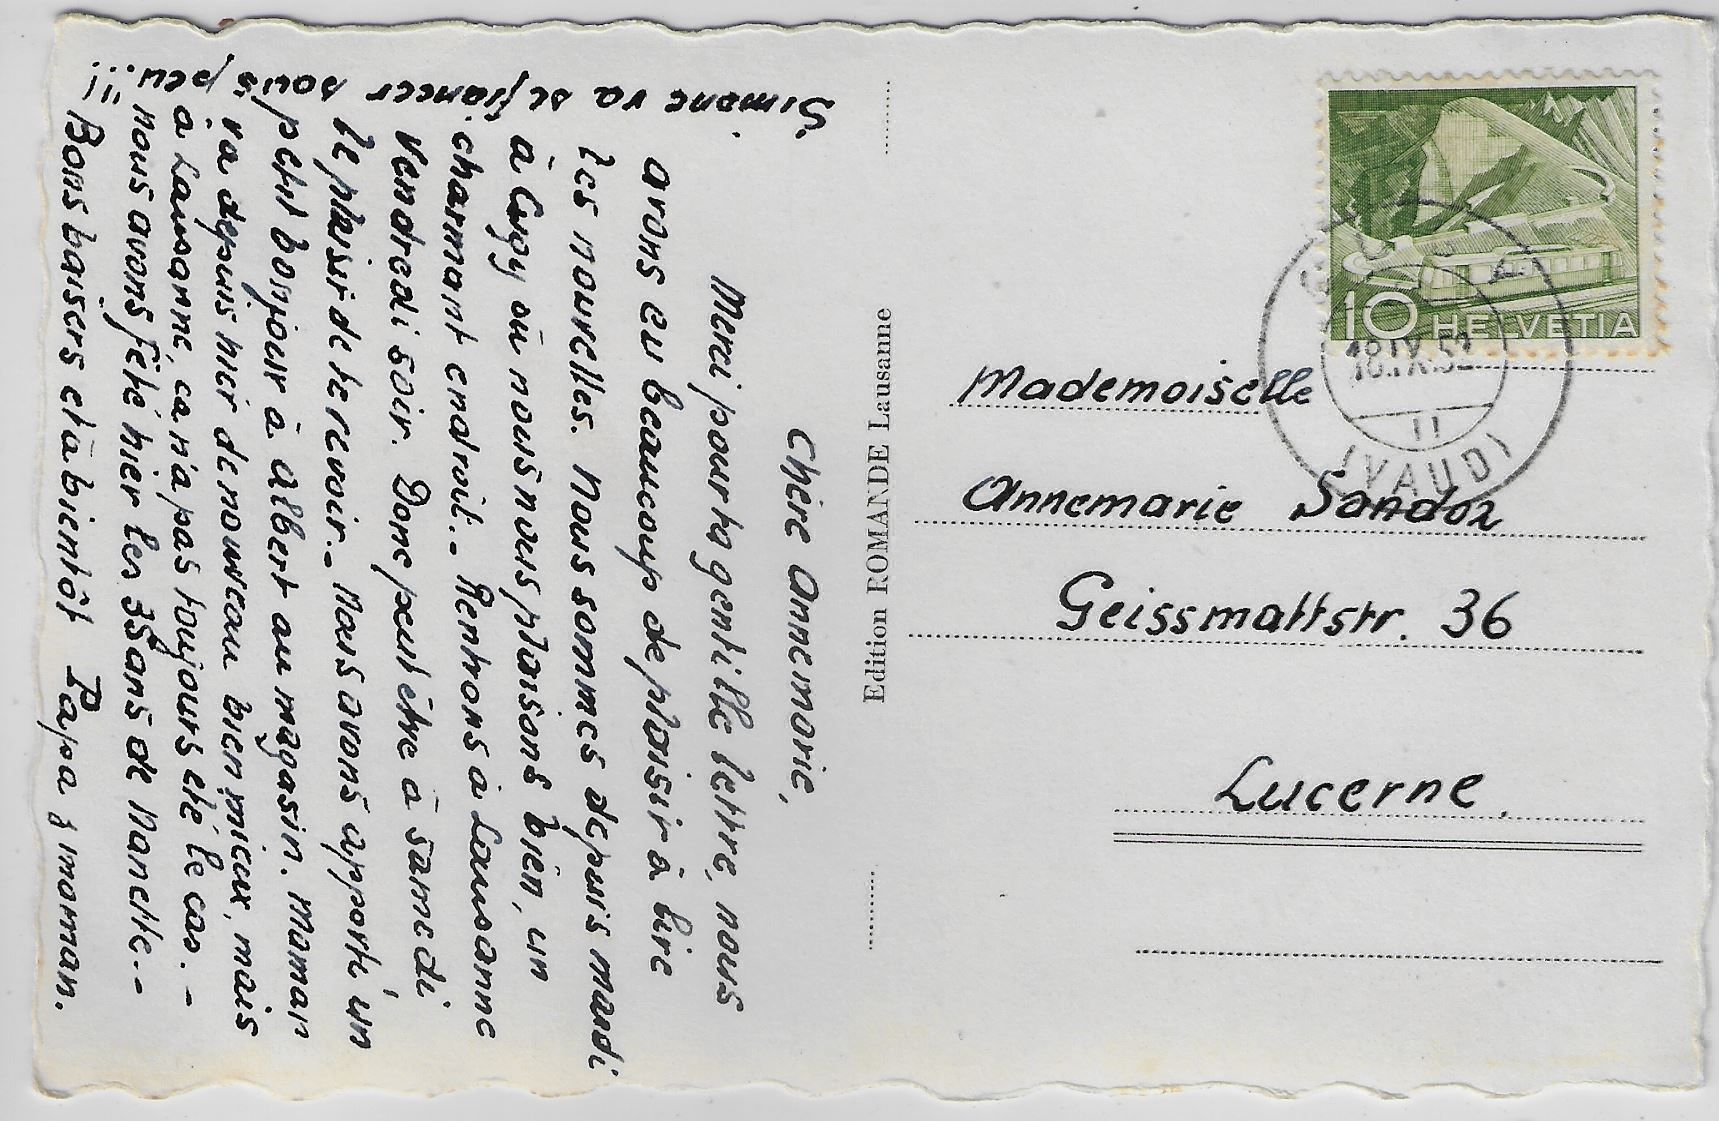 Chère Annemarie,
Merci pour ta gentille lettre, nous
avons eu beaucoup de plaisir à lire
les nouvelles. Nous sommes depuis mardi
à Cugy où nous nous plaisons bien, un
charmant endroit. - Rentrons à Lausanne
Vendredi soir. Donc peut être à samedi
le plaisir de te revoir. - Nous avons apporté un
petit bonjour à Albert au magasin. Maman
va depuis hier de nouveau bien mieux, mais
à Lausanne, ça n'a pas toujours été le cas. -
nous avons fêté hier les 35 ans de Nanette. -
!! Bons baisers et à bientôt Papa & maman.
Simone va se fiancer sous peu...!
Edition ROMANDE Lausanne
10 HELVETIA
18.IX.52
(VAUD)
Mademoiselle
Annemarie Sandoz
Geissmattstr. 36
Lucerne.